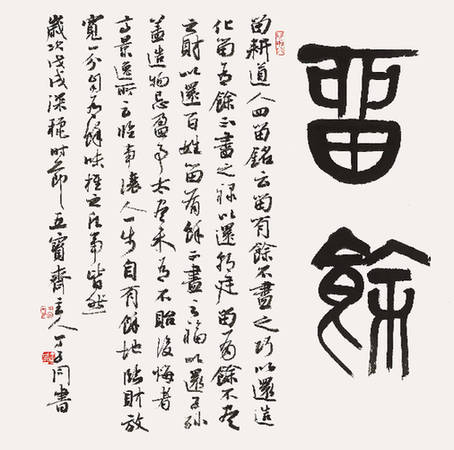 留餘
留耕道人四留銘云留有餘不盡之巧以還造
化留有餘不盡之祿以還朝廷留有餘不盡
之財以還百姓留有餘不盡之福以還子孫
蓋造物忌盈事太盡未有不貽後悔者
高景逸所云臨事讓人一步自有餘地臨財放
寬一分自有餘味推之凡事皆然
歲次戊戌深穐時節五寶齋主人書